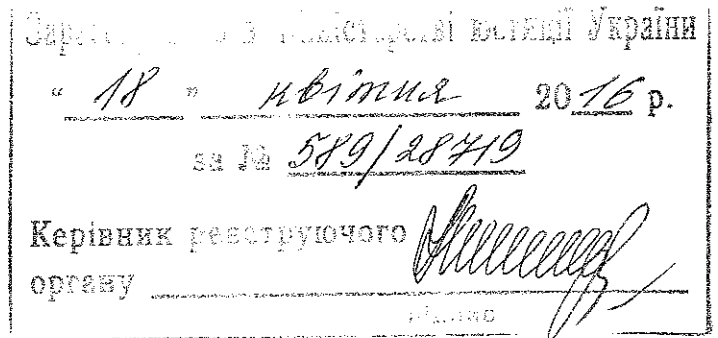 Зареєстровано в Міністерстві юстиції України
" 18 " квітня 2016 р.
за № 589/28719
Керівник реєструючого
органу
підпис